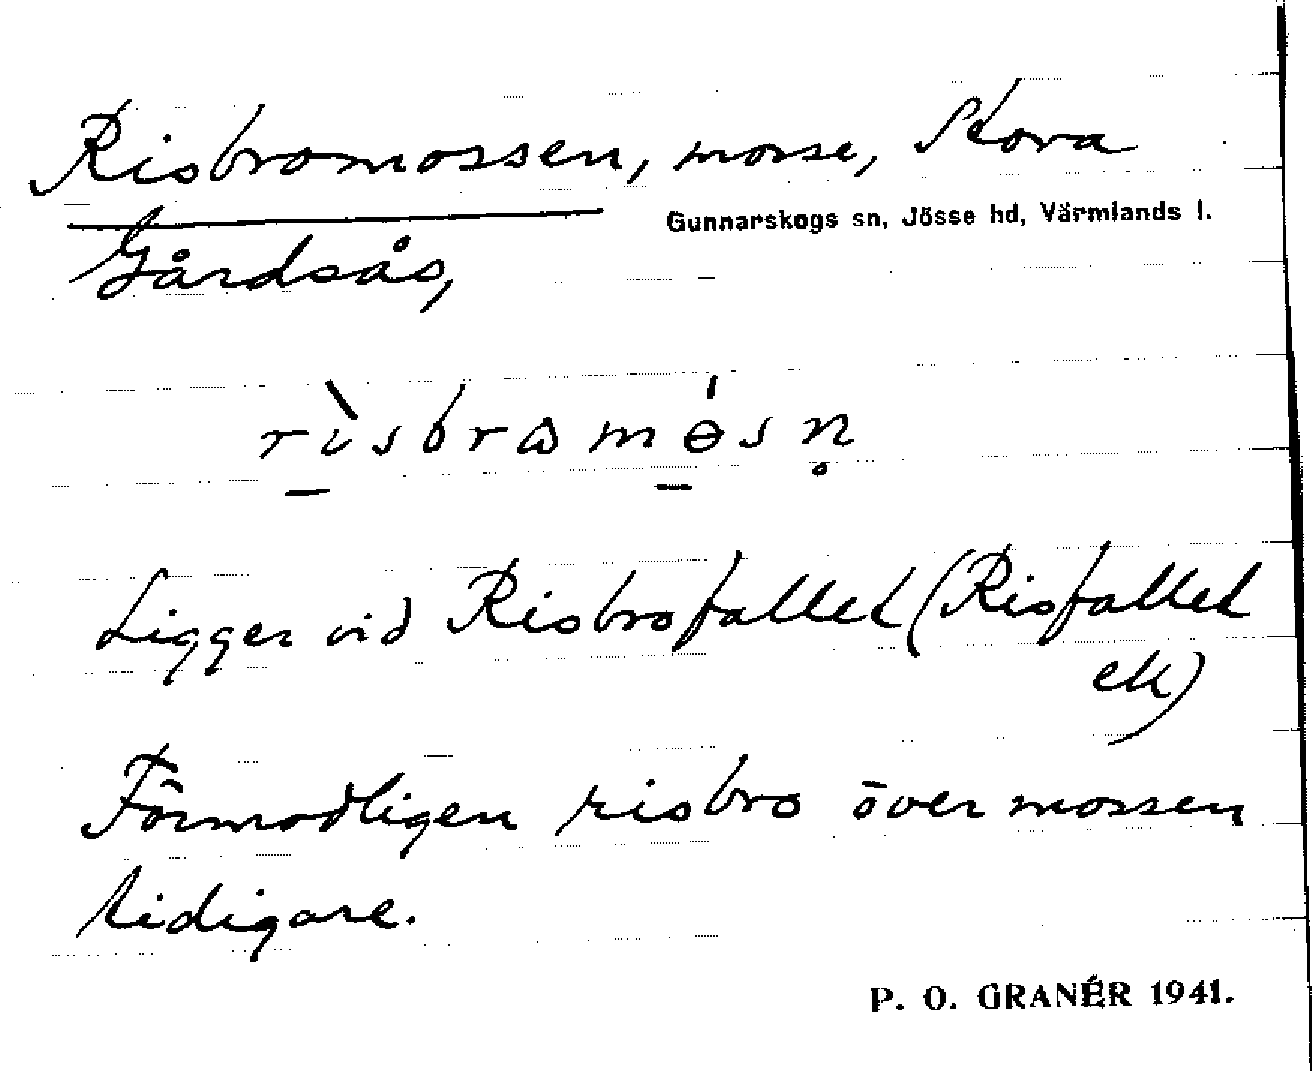 Risbromossen, mosse, Stora
Gunnarskogs sn, Jösse hd, Värmlands l.
Gårdsås,
rìsbramósn̥
Ligger vid Risbrofallet (Risfallet
ek)
Förmodligen risbro över mossen
tidigare.
P. O. GRANÉR 1941.